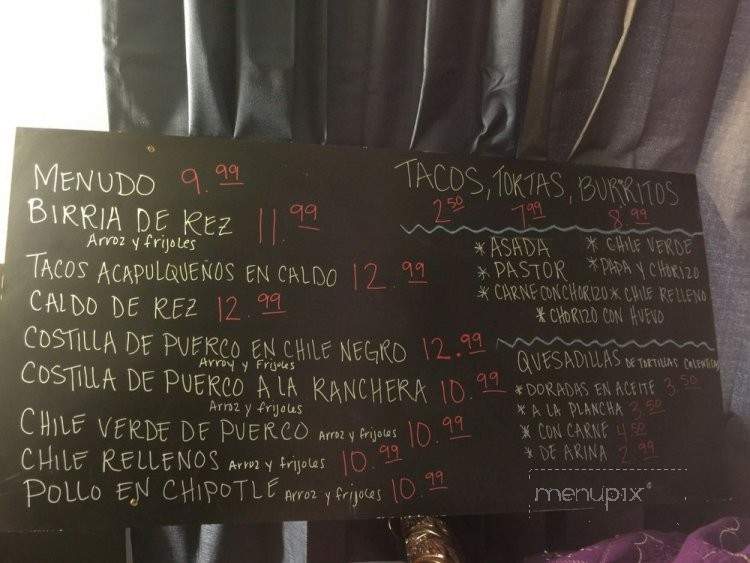 MENUDO 9.99
BIRRIA DE REZ 11.99
Arroz y frijoles
TACOS ACAPULQUEÑOS EN CALDO 12.99
CALDO DE REZ 12.99
COSTILLA DE PUERCO EN CHILE NEGRO 12.99
Arroy y Frijoles
COSTILLA DE PUERCO A LA RANCHERA 10.99
Arroz y frijoles
CHILE VERDE DE PUERCO Arroz y frijoles 10.99
CHILE RELLENOS Arroz y frijoles 10.99
POLLO EN CHIPOTLE Arroz y frijoles 10.99
TACOS, TORTAS, BURRITOS
2.50 7.99 8.99
* ASADA * CHILE VERDE
* PASTOR * PAPA Y CHORIZO
* CARNE CON CHORIZO * CHILE RELLENO
* CHORIZO CON HUEVO
QUESADILLAS DE TORTILLAS CALENTITAS
* DORADAS EN ACEITE 3.50
* A LA PLANCHA 3.50
* CON CARNE 4.50
* DE ARINA 2.99
menupix